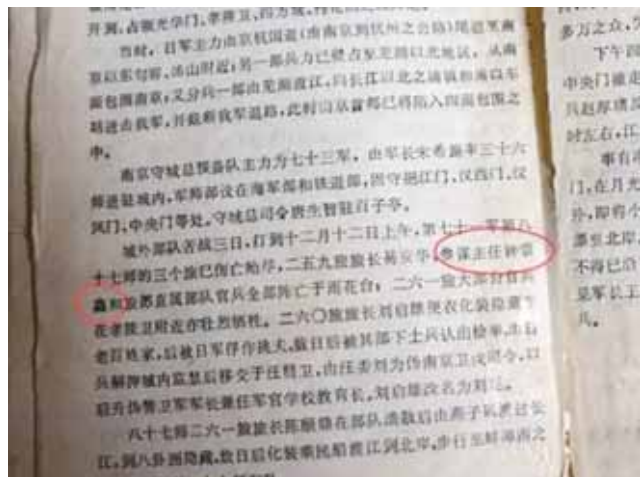 开洞,占领光华门、孝陵卫、四方城,
当时,日军主力由京杭国道(由南京到杭州之公路)尾追至南
京以东句容、汤山附近;另一部兵力已侵占至芜湖以北地区,从南
面包围南京;又分兵一部由芜湖渡江,向长江以北之浦镇和浦口车
站进击我军,并截断我军退路,此时南京首都已将陷入四面包围之
中。
南京守城总预备队主力为七十三军,由军长宋希濂率三十六
师进驻城内,军师部设在海军部和铁道部,固守挹江门、汉西门、汉
风门、中央门等处,守城总司令唐生智驻百子亭。
城外部队苦战三日,打到十二月十二日上午,第七十一军第八
十七师的三个旅已伤亡殆尽,二五九旅旅长易安华、参谋主任钟崇
鑫和旅部直属部队官兵全部阵亡于雨花台;二六一旅大部份官兵
在孝陵卫附近亦壮烈牺牲。二六〇旅旅长刘启雄便衣化装隐藏于
老百姓家,后被日军俘作挑夫,数日后被其部下士兵认出检举,
兵解押城内监禁后移交于汪精卫,由汪委刘为伪南京卫戍司令,以
后升伪警卫军军长兼任军官学校教育长,刘启雄改名为刘
八十七师二六一旅旅长陈颐鼎在部队溃散后由燕子矶渡过长
江,到八卦洲隐藏,数日后化装乘民船渡江到北岸,步行至蚌埠南之
多万之众,
下午四
中央门撤走
兵赵厚
时左右,江
事有
门,在月光
外,即将个
漂至北岸,
不得已沿
见军长王
兵。